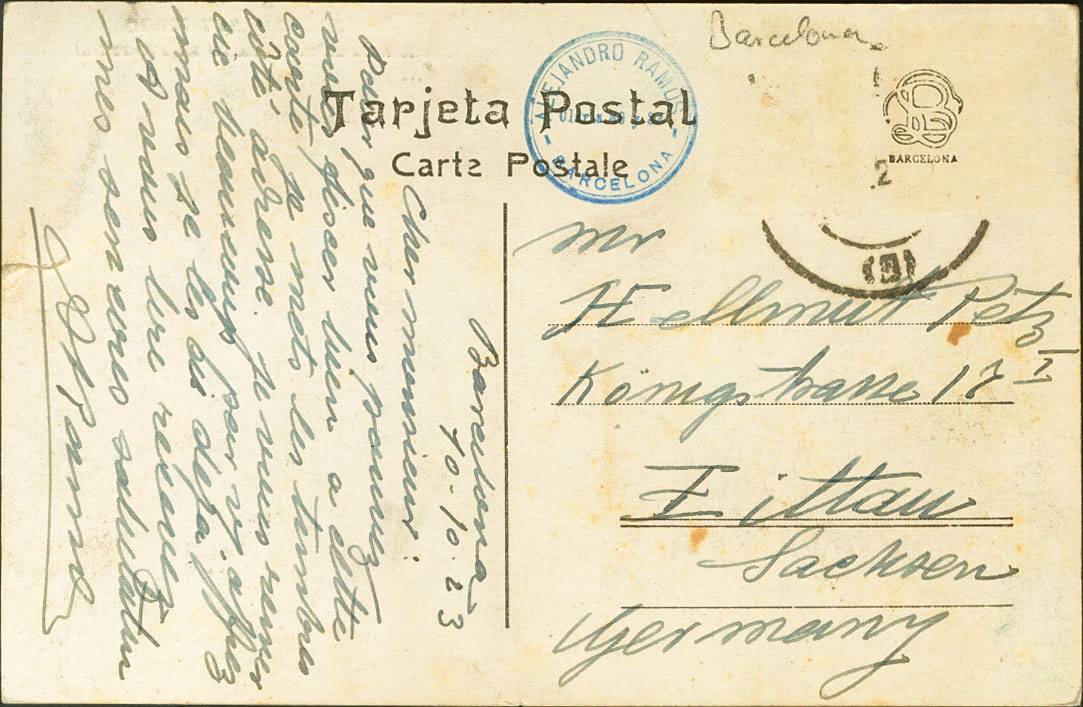 Barcelona
Tarjeta Postal
Carte Postale
ALEJANDRO RAMOS
- BARCELONA -
BARCELONA
2
Barcelona
10.10.23
Cher monsieur:
Pour que vous pouvez
vous diser bien a cette
carte, je mets les timbres
côté adresse. Je vous remer
cie
mais je les ai déja,
A vous lire recevez
mes senceres salutations
ARamos
Mr
Hellmut Petz
Königstrasse 17 I
Zittau
Sachsen
Germany